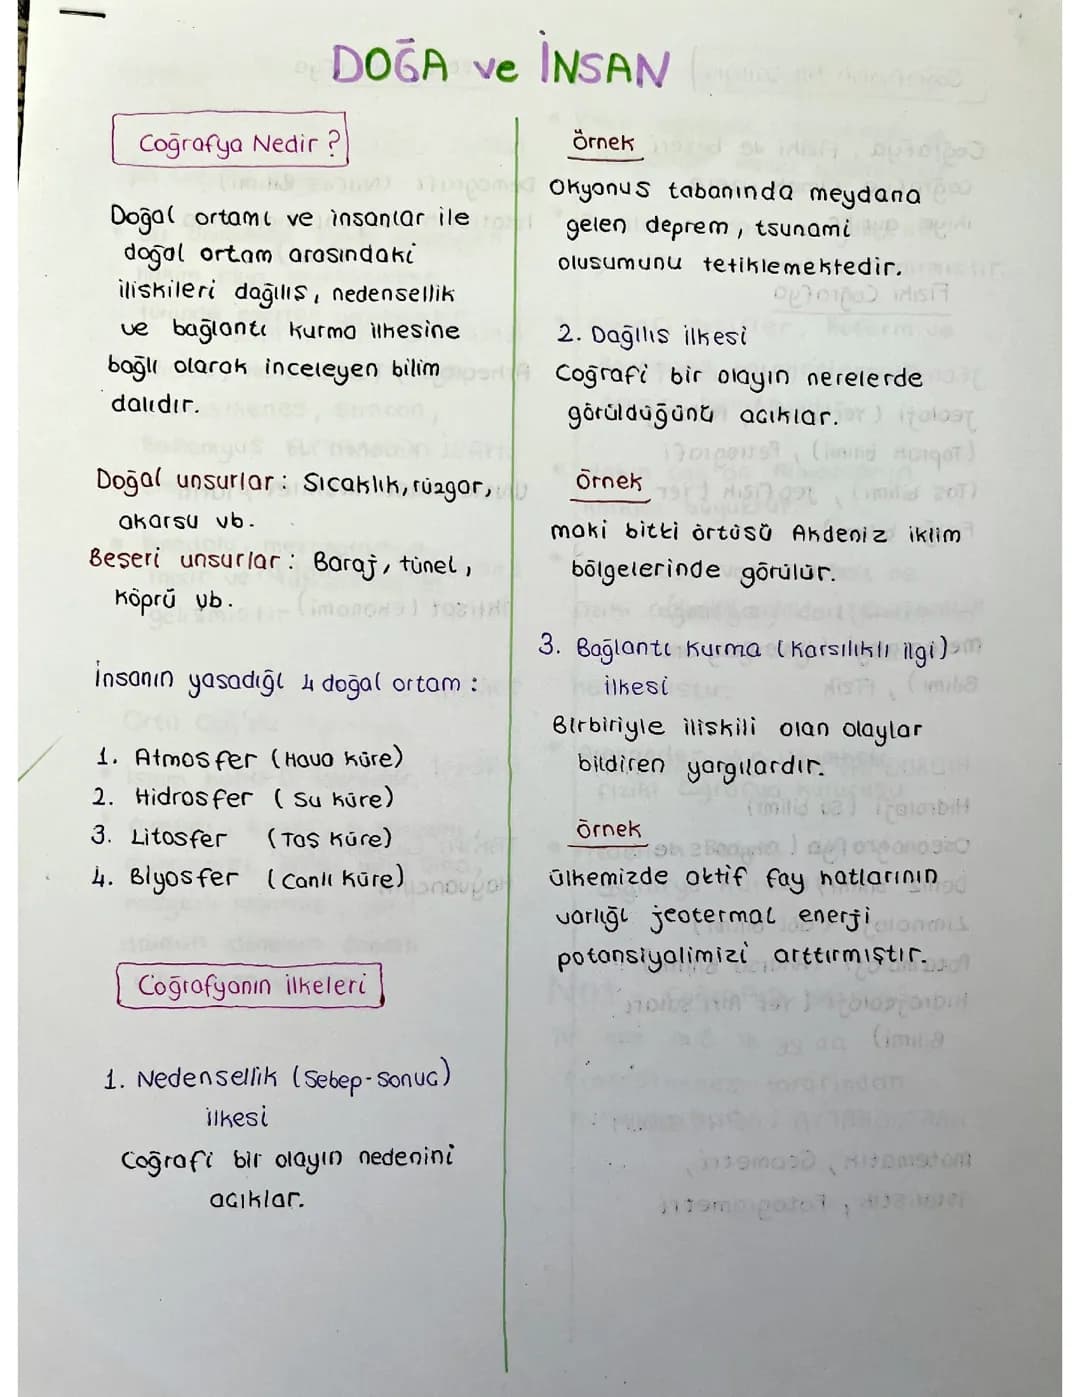 DOĞA ve İNSAN
Coğrafya Nedir ?
Doğal ortamı ve insanlar ile
doğal ortam arasındaki
iliskileri dağılış, nedensellik
ve bağlantı kurma ilkesine
bağlı olarak inceleyen bilim
dalıdır.
Doğal unsurlar : Sıcaklık, rüzgar,
akarsu vb.
Beşeri unsurlar : Baraj, tünel,
Köprü vb.
İnsanın yasadığı 4 doğal ortam :
1. Atmosfer (Hava küre)
2. Hidrosfer (Su küre)
3. Litosfer (Taş Küre)
4. Biyosfer (Canlı Küre)
Coğrafyanın ilkeleri
1. Nedensellik (Sebep-Sonuc)
ilkesi
Coğrafi bir olayın nedenini
acıklar.
örnek
Okyonus tabanında meydana
gelen deprem, tsunami
olusumunu tetiklemektedir.
2. Dağılıs ilkesi
Coğrafi bir olayın nerelerde
görüldüğünü acıklar.
örnek
maki bitki örtüsü Akdeniz iklim
bölgelerinde görülür.
3. Bağlantı Kurma (Karsılıklı ilgi)
ilkesi
Birbiriyle iliskili olan olaylar
bildiren yargılardır.
örnek
ülkemizde aktif fay hatlarının
varlığı jeotermal enerji
potansiyalimizi arttırmıştır.